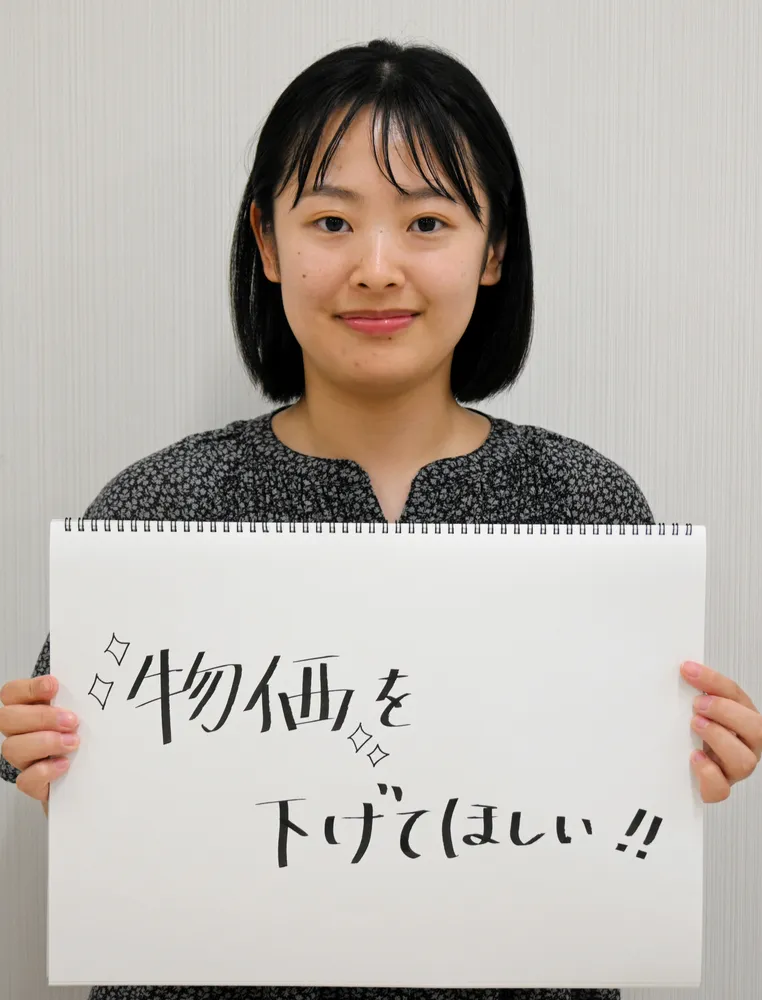 物価を
下げてほしい!!